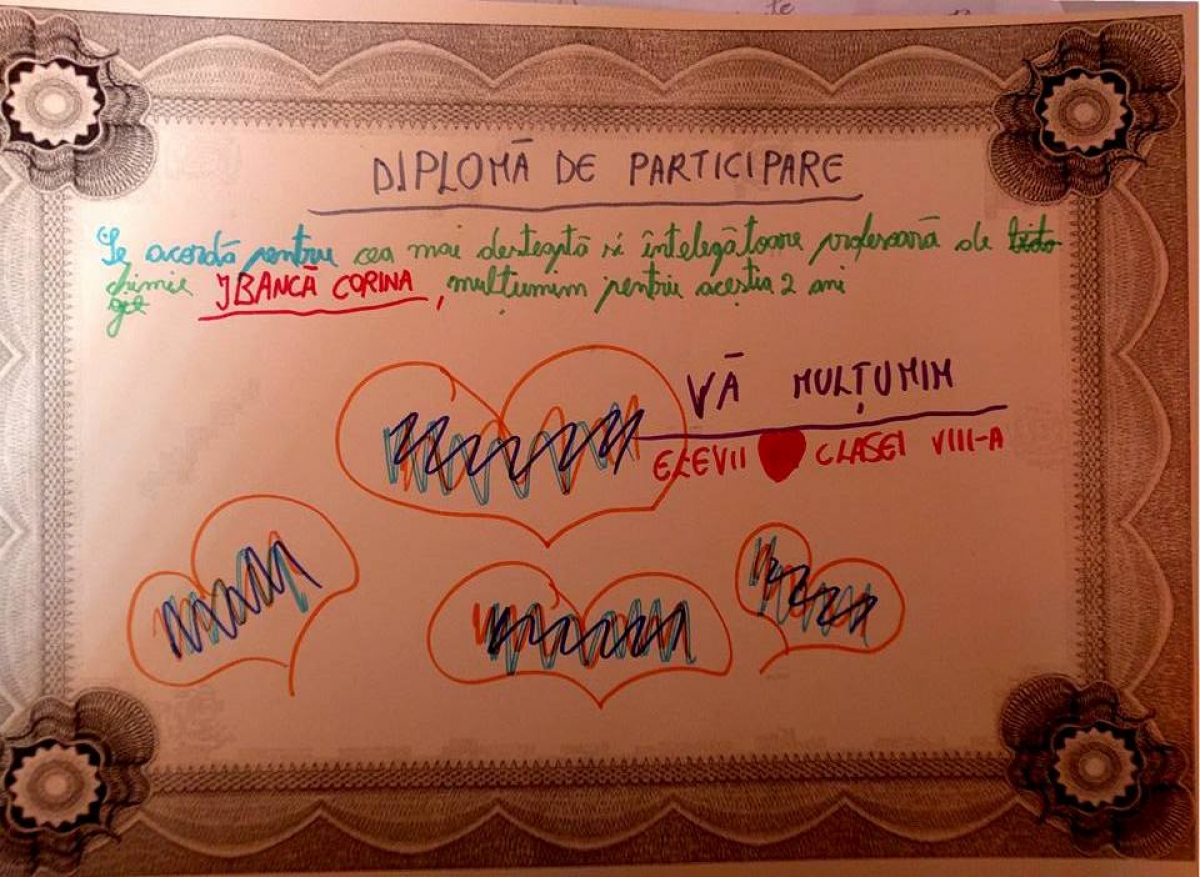 DIPLOMĂ DE PARTICIPARE
Se acordă pentru cea mai desteaptă si întelegătoare profesoară de
chimie IBANCĂ CORINA, mulțumim pentru acestia 2 ani
VĂ MULȚUMIM
ELEVII CLASEI VIII-A